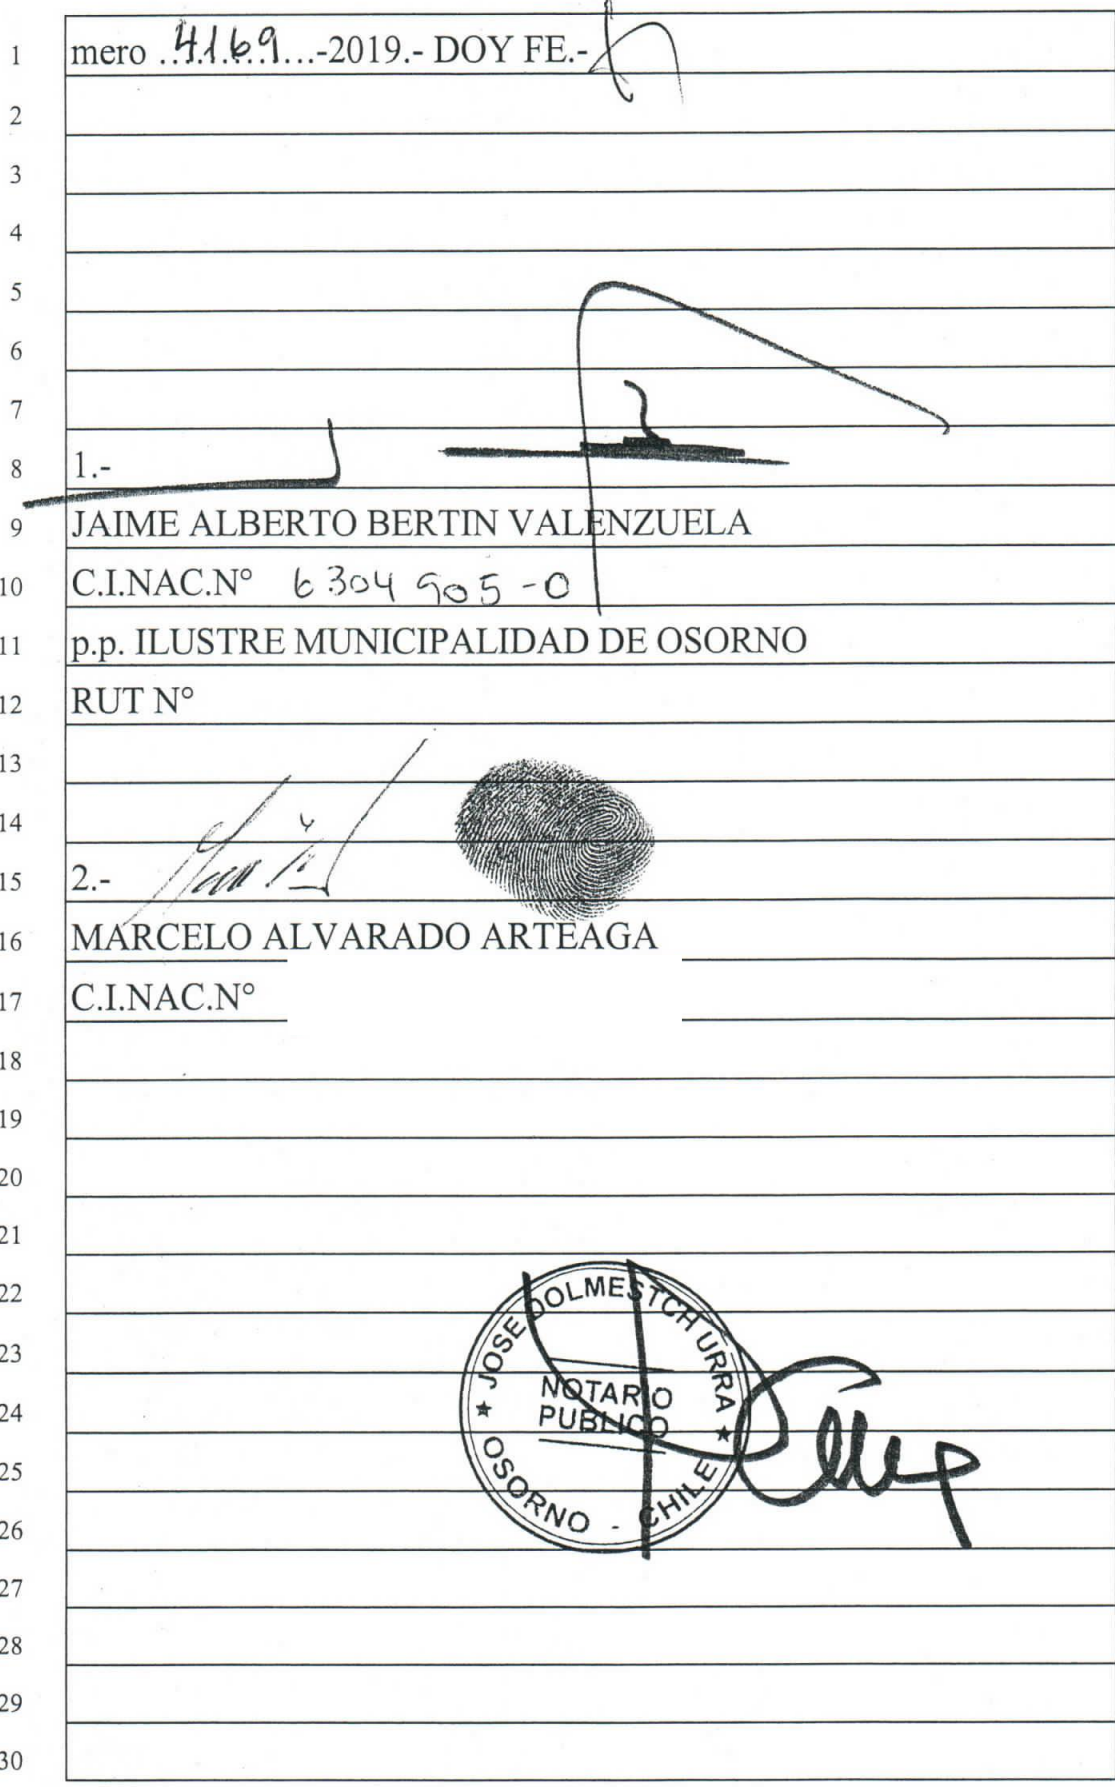 1 mero .4169...-2019.- DOY FE.-
2
3
4
5
6
7
8 1.-
9 JAIME ALBERTO BERTIN VALENZUELA
10 C.I.NAC.N° 6304905-0
11 p.p. ILUSTRE MUNICIPALIDAD DE OSORNO
12 RUT N°
13
14
15 2.-
16 MARCELO ALVARADO ARTEAGA
17 C.I.NAC.N°
18
19
20
21
22
23
24
25
26
27
28
29
30
JOSE DOLMESTCH URRA
NOTARIO
PUBLICO
OSORNO - CHILE